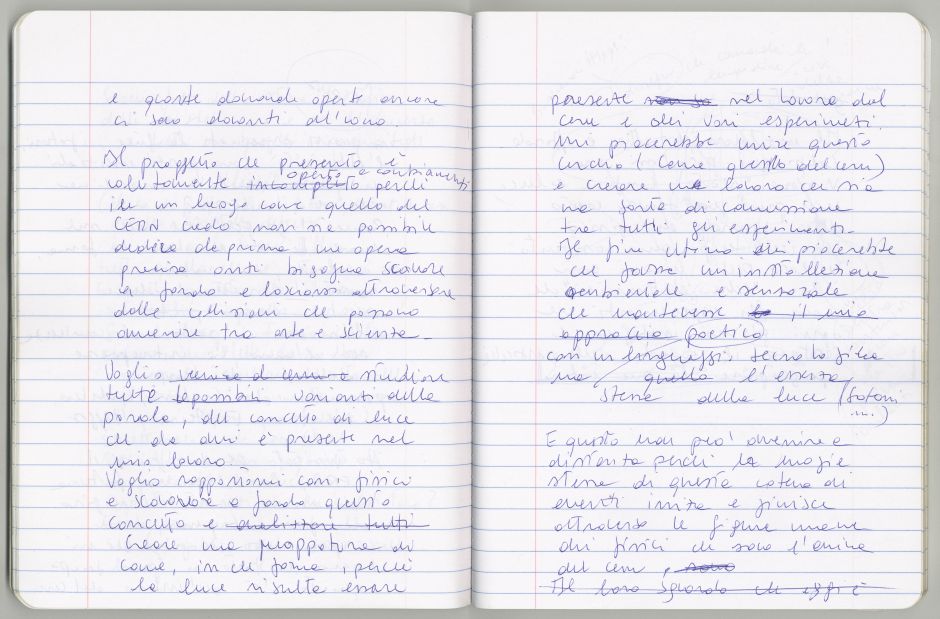 e queste domande aperte ancora
ci sono davanti all'uomo.
Il progetto che presento è
aperto e cambiamenti
volutamente incompleto perché
in un luogo come quello del
CERN credo non sia possibile
prima un opera
precisa anzi bisogna scavare
a fondo e lasciarsi attraversare
dalle collisioni che possono
avvenire tra arte e scienza.
Voglio venire al cern e studiare
tutte le possibili varianti della
parola, del concetto di luce
che da anni è presente nel
mio lavoro.
Voglio rapportarmi con i fisici
e scavare a fondo questo
concetto e analizzare tutti
Creare una mappatura di
come, in che forma, perché
la luce risulta essere
presente nel lavoro del
cern e dei vari esperimenti.
Mi piacerebbe unire questo
cerchio (come quello del cern)
e creare un lavoro che sia
una sorta di connessione
tra tutti gli esperimenti.
Il fine ultimo mi piacerebbe
che fosse un installazione
ambientale e sensoriale
che mantenesse il mio
approccio poetico
con un linguaggio tecnologico
ma quello l'essenza
stessa della luce (fotoni
...)
E questo non può avvenire a
distanza perché la magia
stessa di questa catena di
eventi inizia e finisce
attraverso le figure umane
dei fisici che sono l'anima
del cern,
Il loro sguardo che